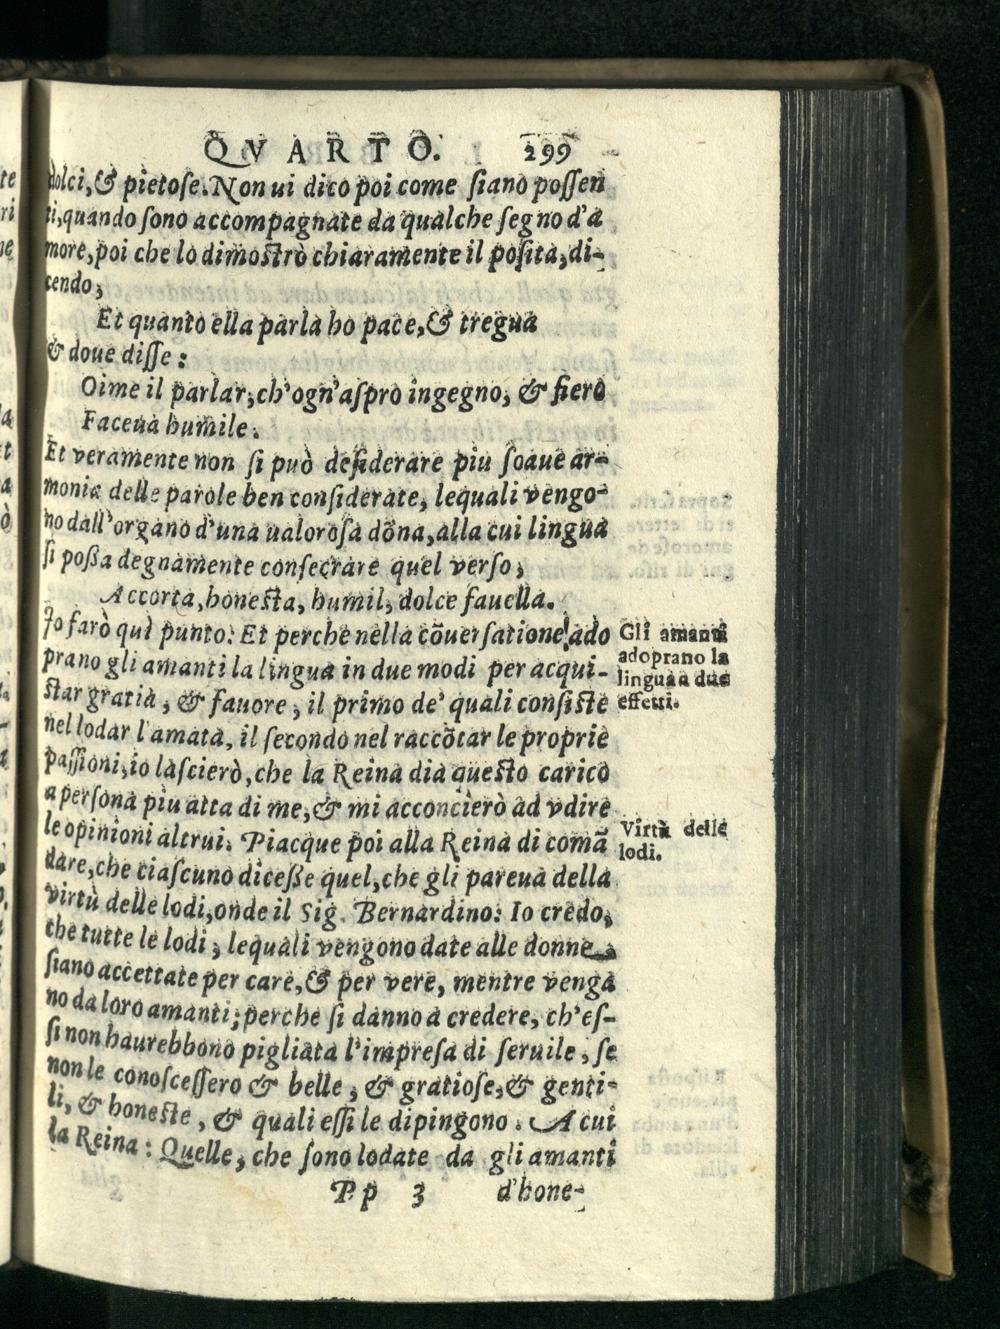 QVARTO. 299
dolci, & pietose. Non ui dico poi come siano possen
ti, quando sono accompagnate da qualche segno d'a
more, poi che lo dimostrò chiaramente il poeta, di-
cendo;
Et quanto ella parla ho pace, & tregua
& doue disse:
Oime il parlar, ch'ogn'aspro ingegno, & fiero
Faceua humile.
Et veramente non si può desiderare piu soaue ar-
monia delle parole ben considerate, lequali vengo-
no dall'organo d'una ualorosa dōna, alla cui lingua
si poßa degnamente consecrare quel verso;
Accorta, honesta, humil, dolce fauella.
Io farò quì punto: Et perche nella cōuersatione ado
prano gli amanti la lingua in due modi per acqui-
star gratia, & fauore, il primo de' quali consiste
nel lodar l'amata, il secondo nel raccōtar le proprie
passioni, io lascierò, che la Reina dia questo carico
a persona piu atta di me, & mi acconcierò ad vdire
le opinioni altrui. Piacque poi alla Reina di comā
dare, che ciascuno diceße quel, che gli pareua della
virtù delle lodi, onde il Sig. Bernardino: Io credo,
che tutte le lodi, lequali vengono date alle donne
siano accettate per care, & per vere, mentre venga
no da loro amanti; perche si danno a credere, ch'es-
si non haurebbono pigliata l'impresa di seruile, se
non le conoscessero & belle, & gratiose, & genti-
li, & honeste, & quali essi le dipingono. A cui
la Reina: Quelle, che sono lodate da gli amanti
Pp 3 d'hone-
Gli amanti
adoprano la
lingua a due
effetti.
Virtù delle
lodi.